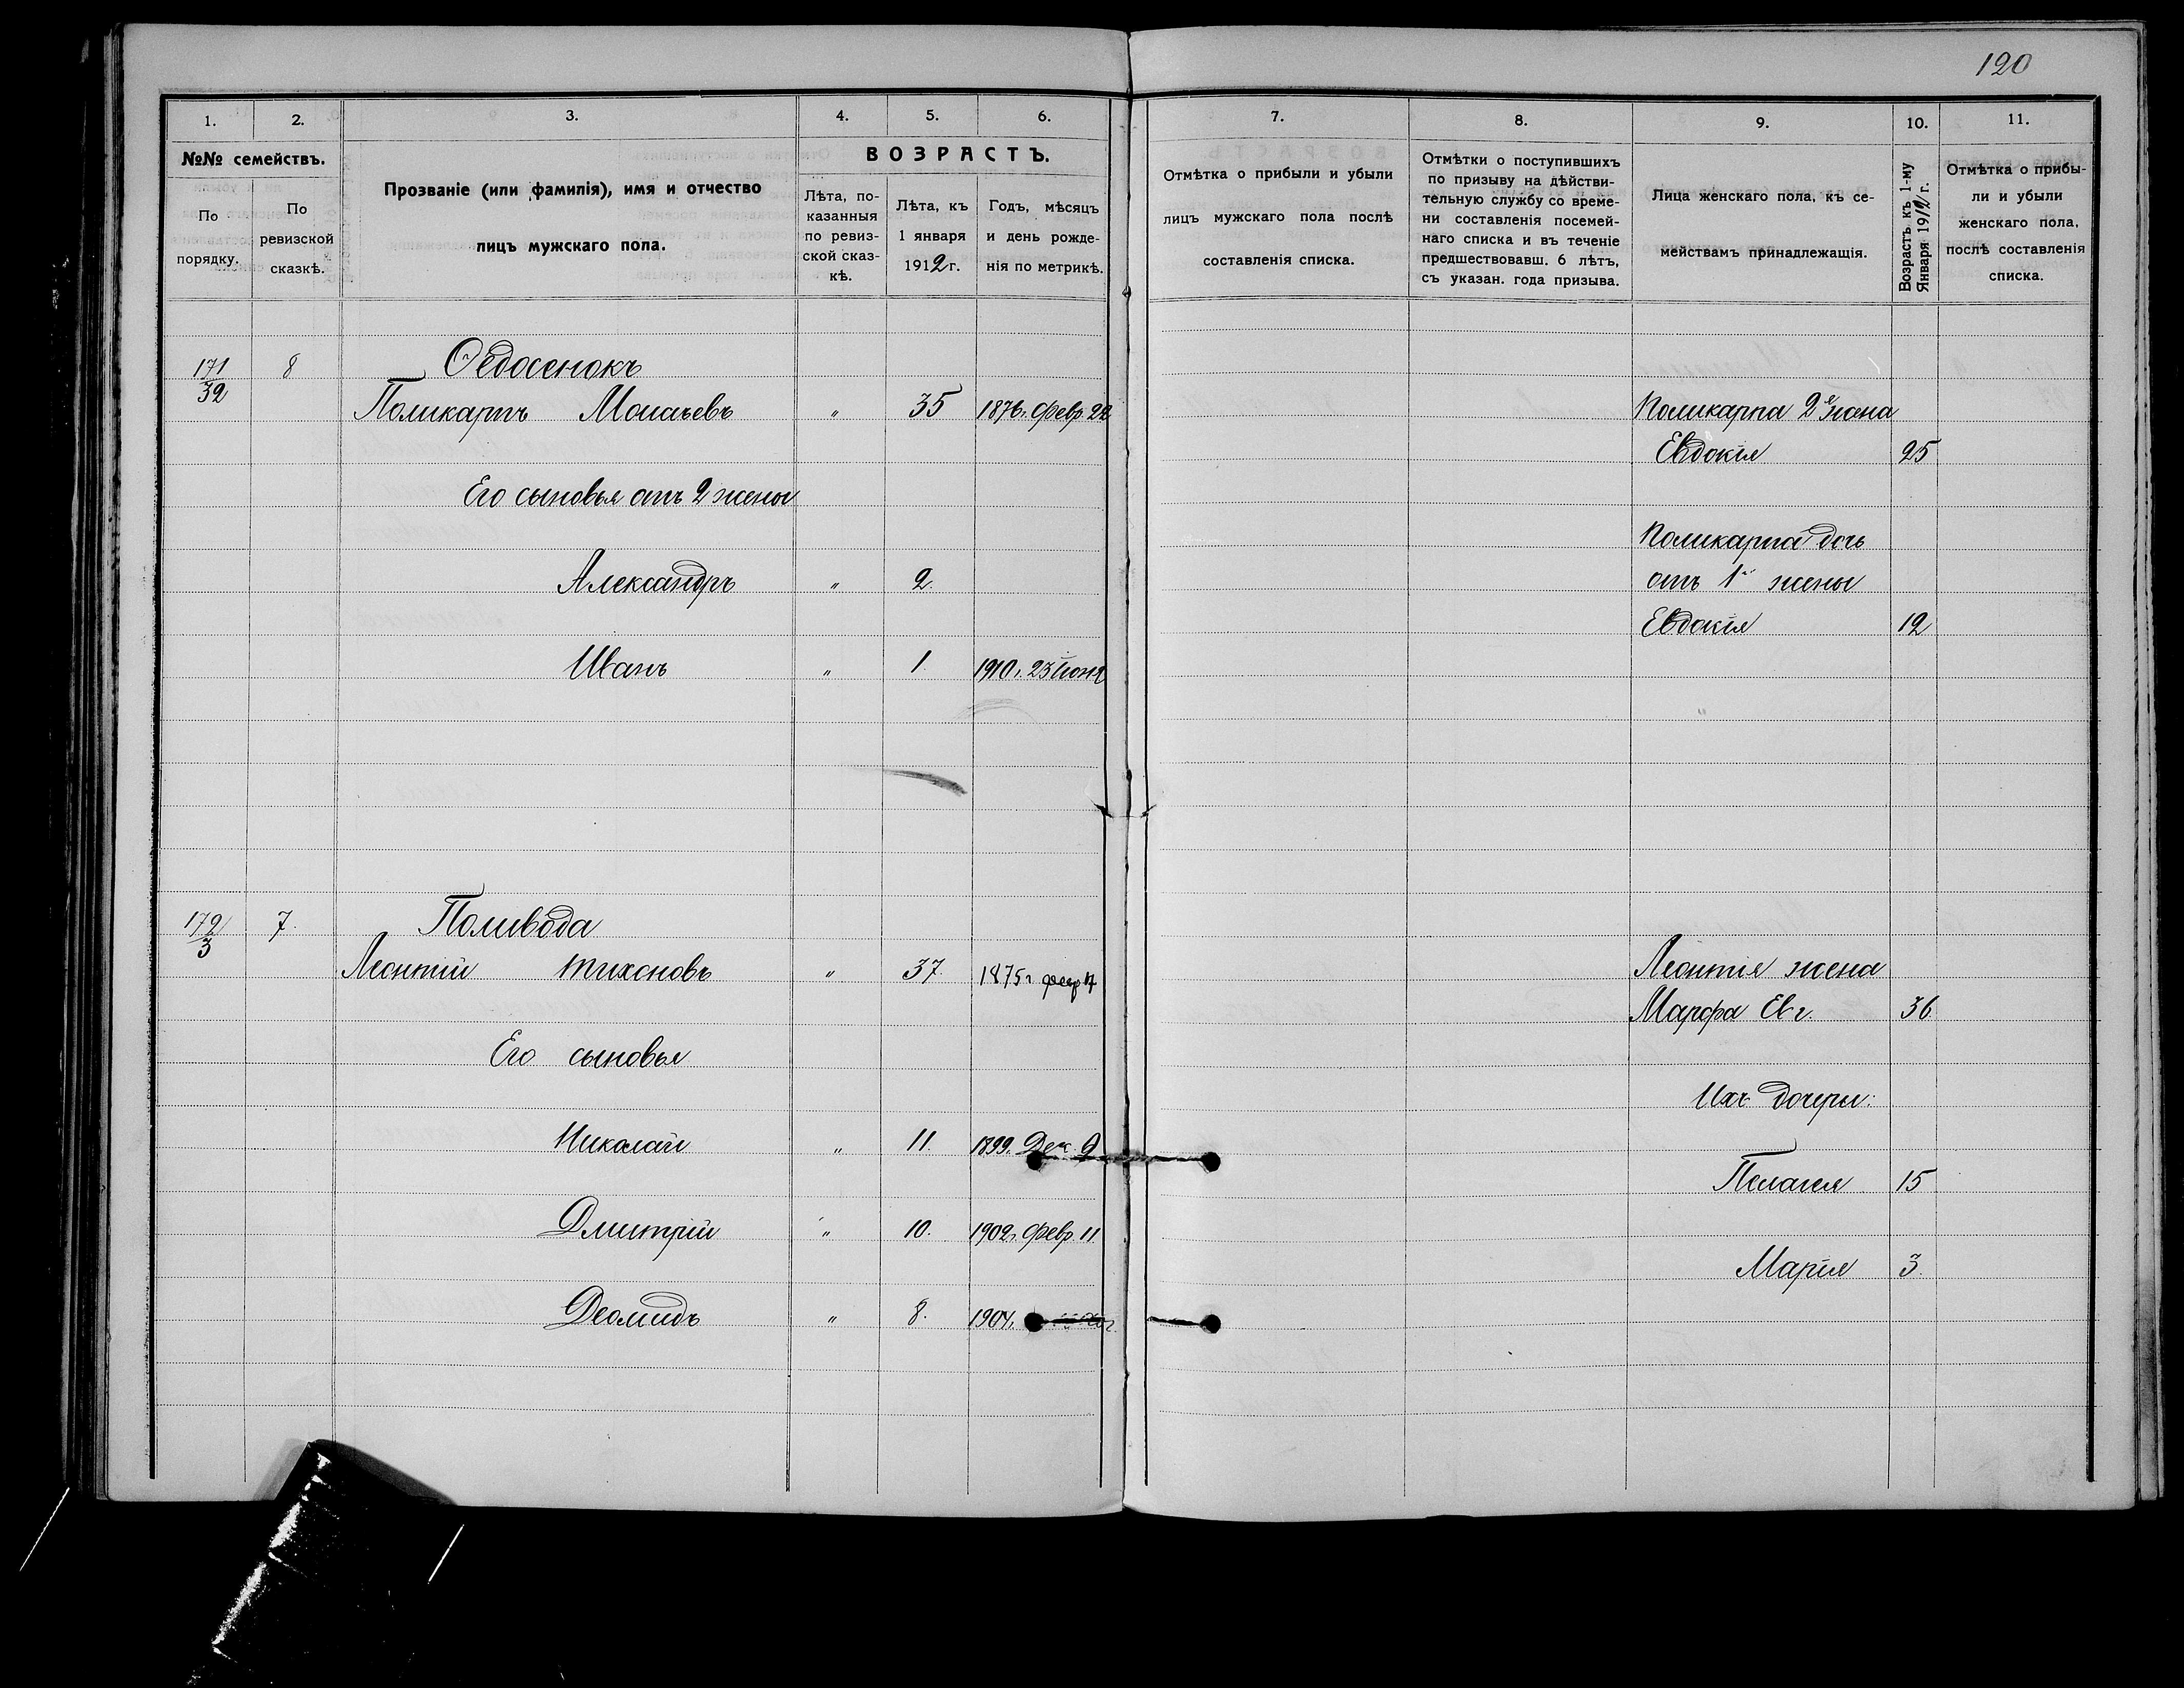 120
1. 2. 3. 4. 5. 6. 7. 8. 9. 10. 11.
№№ семействъ.
По порядку.
По ревизской сказкѣ.
Прозваніе (или фамилія), имя и отчество
лицъ мужскаго пола.
ВОЗРАСТЪ.
Лѣта, по-
казанныя
по ревиз-
ской сказ-
кѣ.
Лѣта, къ
1 января
1912 г.
Годъ, мѣсяцъ
и день рожде-
нія по метрикѣ.
Отмѣтка о прибыли и убыли
лицъ мужскаго пола послѣ
составленія списка.
Отмѣтки о поступившихъ
по призыву на дѣйстви-
тельную службу со време-
ни составленія посемей-
наго списка и въ теченіе
предшествовавш. 6 лѣтъ,
съ указан. года призыва.
Лица женскаго пола, къ се-
мействамъ принадлежащія.
Возрастъ къ 1-му
Января 1912 г.
Отмѣтка о прибы-
ли и убыли
женскаго пола,
послѣ составленія
списка.
171/32 8 Федосенокъ
Поликарпъ " 35 1876 г. февр 22 Поликарпа 2я жена
Евдокія 25
Его сыновья отъ 2 жены
Поликарпа дочь
Александръ " 2. отъ 1й жены
Евдокія 12
Иванъ " 1. 1910 г. 23 Іюня
172/3 7. Поливода
Леонтій Тихоновъ " 37. 1875 г февр Леонтія жена
Марфа Евг. 36
Его сыновья
Ихъ дочери:
Николай " 11. 1899. Дек 9
Пелагея 15
Дмитрій " 10. 1902 г. февр 11.
Марія 3.
Деомидъ " 8. 1904 г.